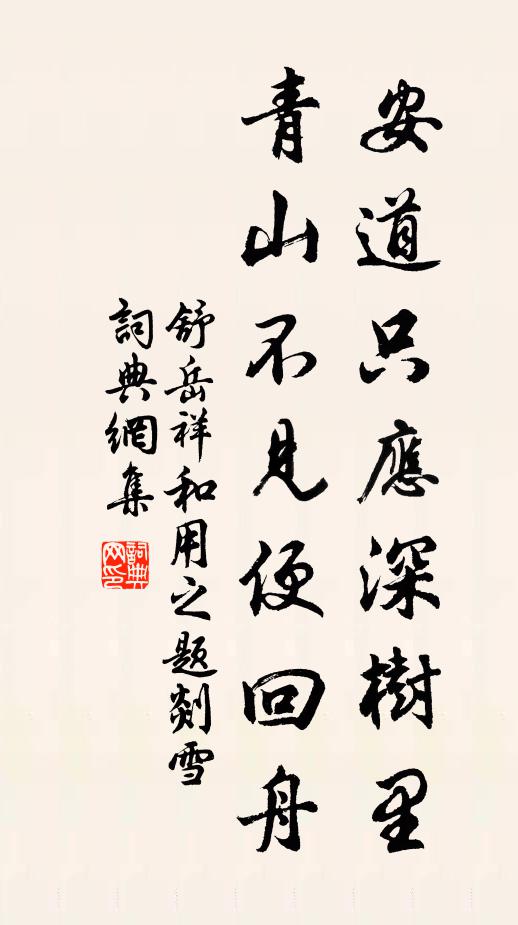 安道只應深樹里
青山不見便回舟
舒岳祥和用之题剡雪
詞典網集
詞典网印